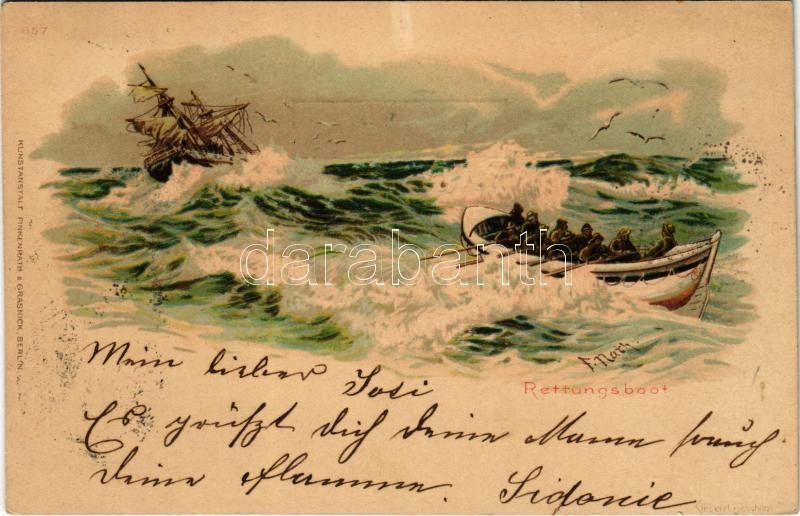 857
KUNSTANSTALT FINKENRATH & GRASNICK, BERLIN
darabanth
F. North
Rettungsboot
Mein lieber Josi
Es grüßt dich deine Mama sowie
deine Flamme. Sidonie
Gesetzl. geschützt